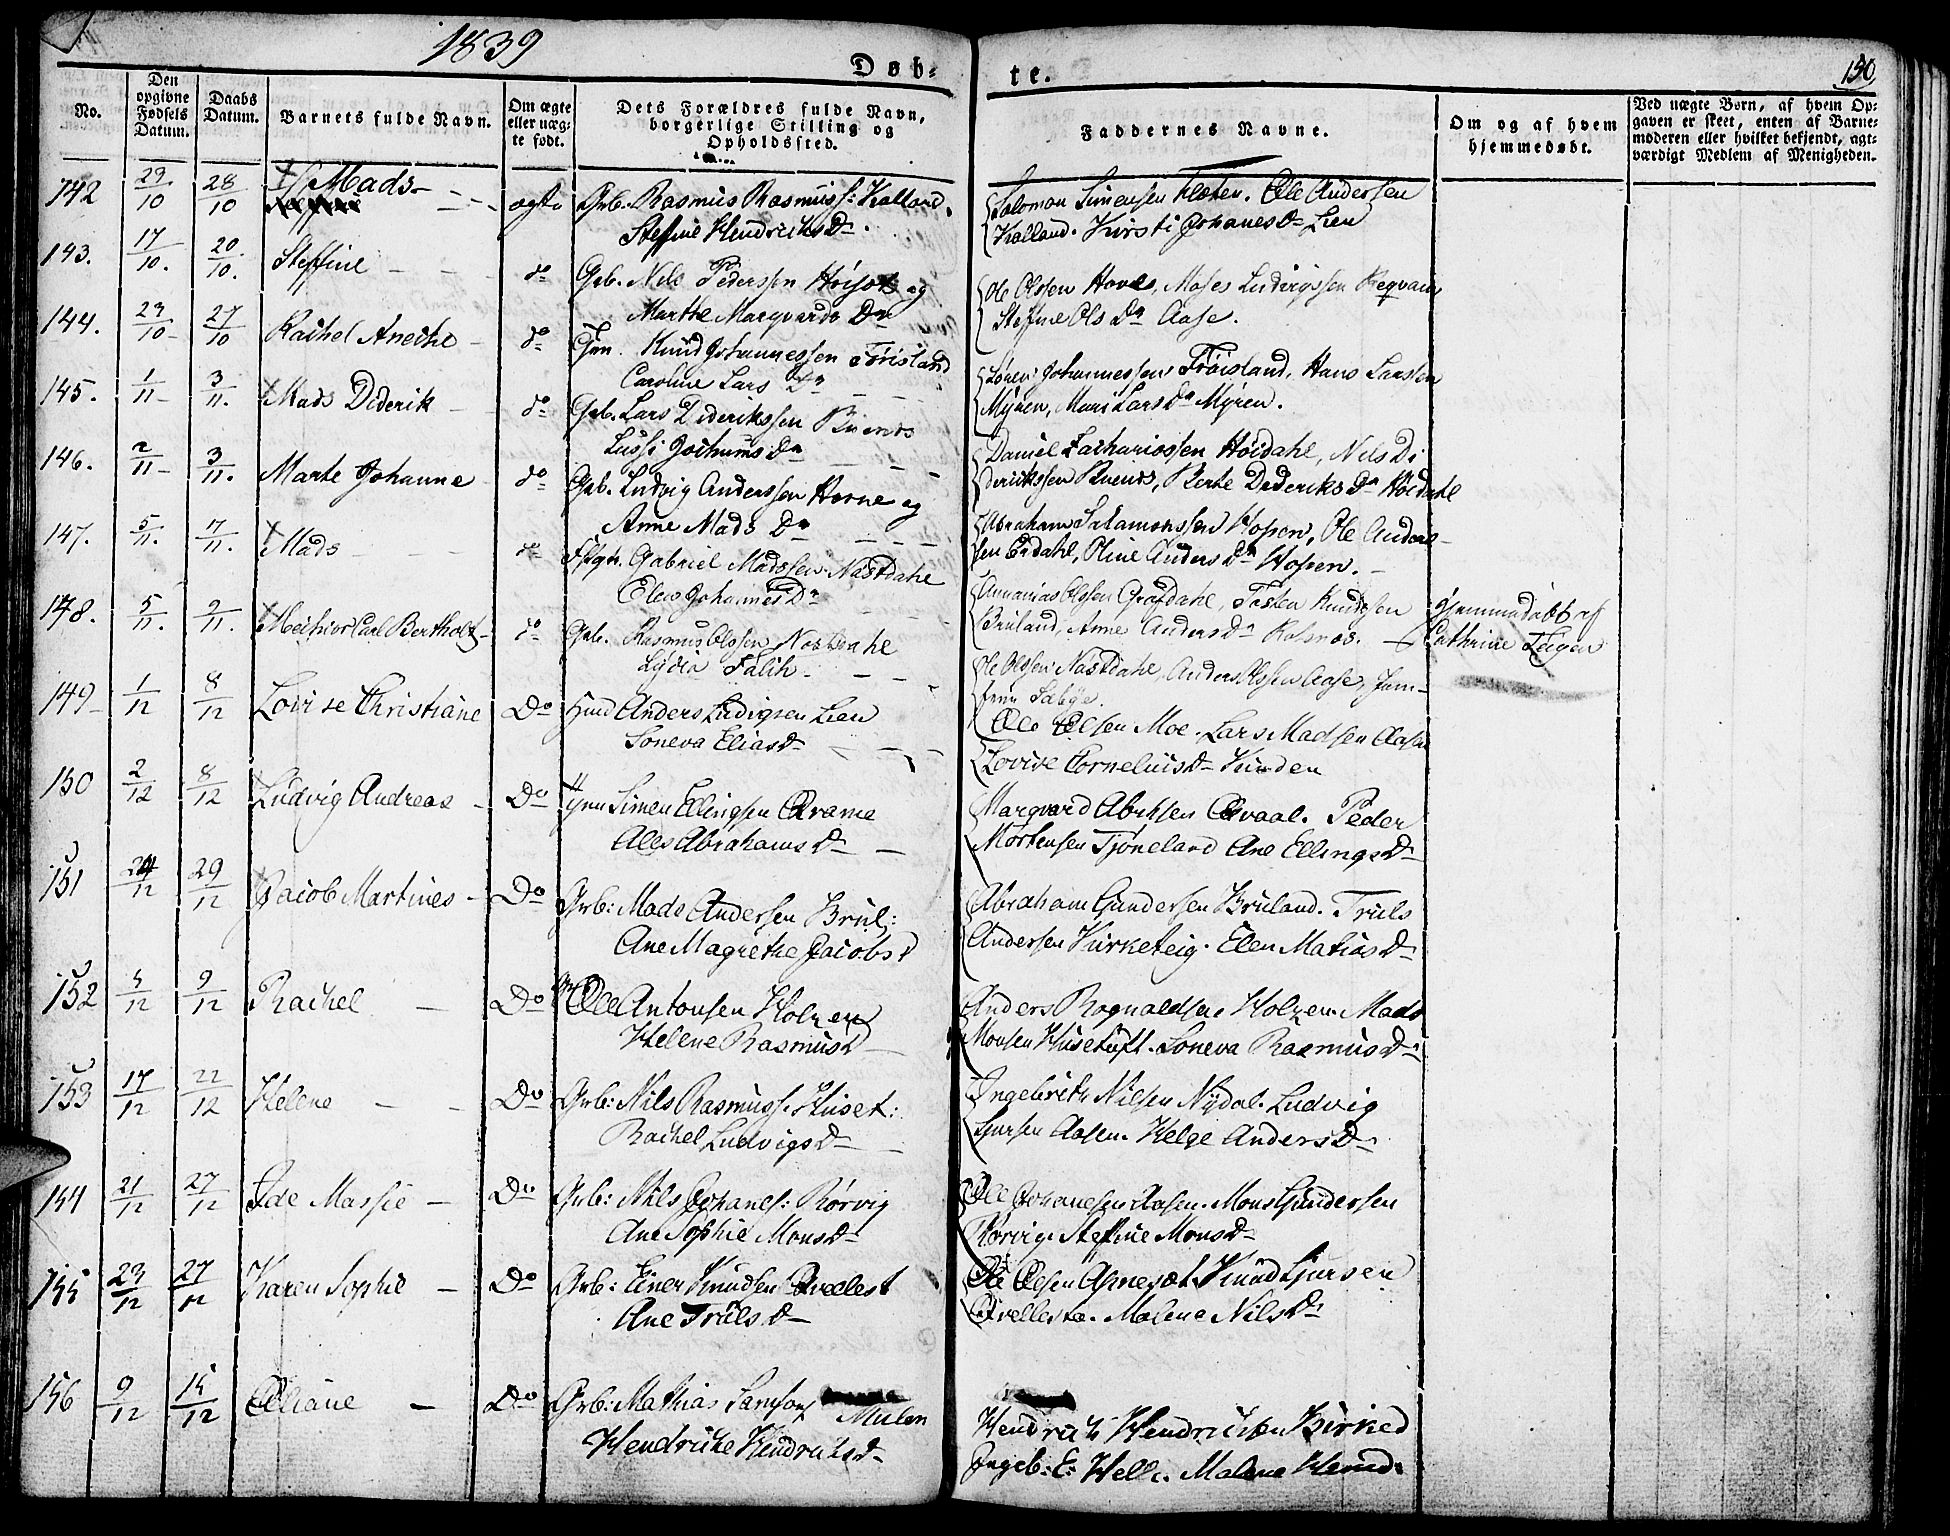 1839
Døb-
te.
150
No.
Den opgivne Fødsels Datum.
Daabs Datum.
Barnets fulde Navn.
Om ægte eller uægte født.
Dets Forældres fulde Navn, borgerlige Stilling og Opholdssted.
Faddernes Navne.
Om og af hvem hjemmedøbt.
Ved uægte Børn, af hvem Opgaven er skeet, enten af Barnemoderen eller hvilket bekjendt, agtværdigt Medlem af Menigheden.
142 29/10 28/10 Mads ægte Grb. Rasmus Rasmuss: Kalland,
Steffine HendriksD.
Salomon Simensen Floten. Ole Andersen
Kalland. Kirsti JohanesD Lien
143. 17/10. 20/10. Steffine do Grb. Nils Pederssen og
Marthe Marqvards Dr
Ole Olssen Hovas, Moses Ludvigssen
Steffine Ols Dr Aase.
144. 23/10 27/10 Rachel Anethe do Knud Johannessen Frøisland
Caroline Lars Dr
Johannessen Frøisland, Hans Larssen
Myren, Mari Lars Dr Myren.
145. 1/11 3/11. Mads Diderik do Grb. Lars Dideriksen
Lussi Jochums Dr
Daniel Zachariassen Høidahl, Nils Di
derikssen, Berte Dideriks Dr Høidahl
146. 2/11 3/11. Marte Johanne do Grb. Ludvig Anderssen Horne og
Anne Mads Dr
Abraham Salamonssen Hopen, Ole Anders
sen Erdahl, Oline Anders Dr Hopen.
147. 5/11. 17/11. Mads do Gabriel Madssen Nastdahl
Elen Johannes Dr
Annanias Olssen Grøfdahl, Tosten Knudssen
Bruland, Anne Anders Dr
148. 5/11. 9/11. Carl Bertholt do Grb. Rasmus Olssen Nastdahl
Lydia Falch
Ole Olssen Nastdahl, Anders Olssen Aase, Jom-
fru
Hjemmedøbt af
Cathrine Teigen
149 1/12 8/12 Lovise Christiane Do Huus Anders Ludigsen Lien
Soneva EliasD
Ole Olsen Moe. Lars Madsen Aasen
Lovise CorneliusD
150 2/12 8/12 Ludvig Andreas Do Simen Ellingsen Qvame
Ales AbrahamsD
Marqvard Abelsen Qvaal. Peder
Mortensen Tjøneland Ane EllingsD
151 24/12 29/12 Jacob Martines Do Grb: Mads Andersen Brul:
Ane Magrethe JacobsD
Abraham Gundersen Bruland. Truls
Andersen Kirketeig. Elen MatiasD
152 5/12 9/12 Rachel Do Ole Antonsen Holzen
Helene RasmusD
Anders Ragnvaldsen Holzen. Mads
Monsen Husetuft. Soneva RasmusD
153 17/12 22/12 Helene Do Grb: Nils Rasmuss. Huset:
Rachel LudvigsD
Ingebrigt Nilsen Nydal. Ludvig
Sjursen Aasen. Helge AndersD
154 21/12 27/12 Ide Massie Do Grb: Nils Johanes: Rørvig
Ane Sophie MonsD
Ole Johanesen Aasen. Mons Gundersen
Rørvig. Steffine MonsD
155 23/12 27/12 Karen Sophie Do Grb: Einer Knudsen Qvellest
Ane TrulsD
Ole Olsen. Knud Sjursen
Qvellesta. Malena NilsD
156 9/12 15/12 Eliane Do Grb: Mathias Samsons Mulen
Hendrikke HendriksD
Hendrick Hendricksen Birked
Ingeb: E: Helle. Malene Hend.